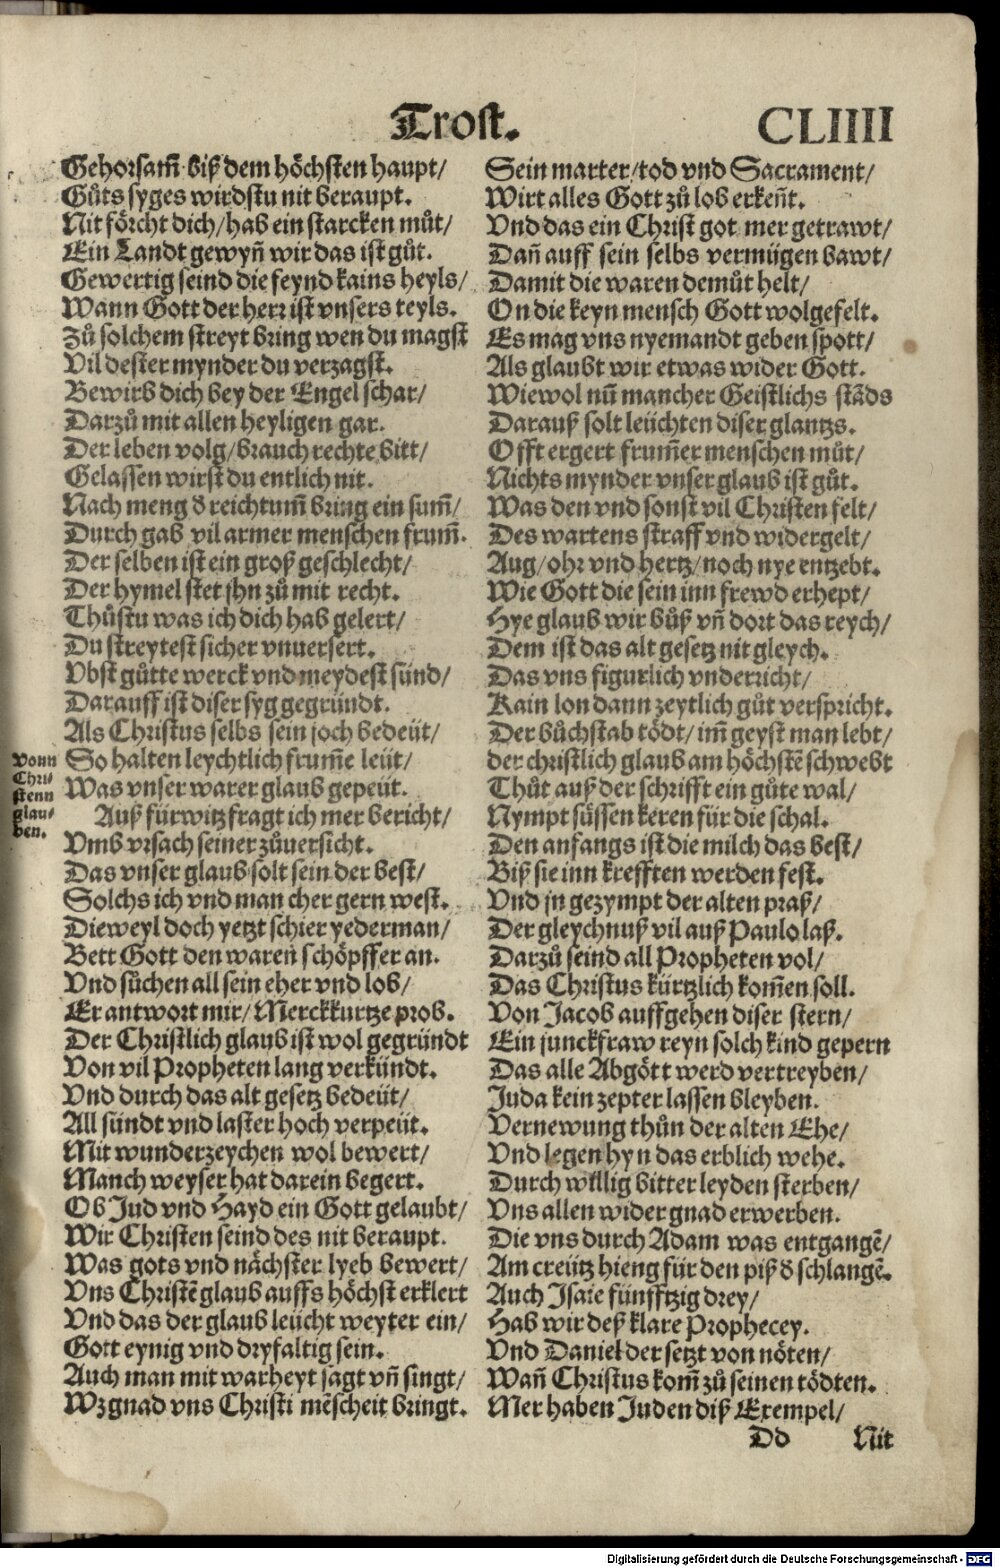 Trost.
CLIIII
Gehorsam̃ biß dem höchsten haupt/
Gůts syges wirdstu nit beraupt.
Nit förcht dich/hab ein starcken můt/
Ein Landt gewyn̄ wir das ist gůt.
Gewertig seind die feynd kains heyls/
Wann Gott der herr ist vnsers teyls.
Zů solchem streyt bring wen du magst
Vil dester mynder du verzagst.
Bewirb dich bey der Engel schar/
Darzů mit allen heyligen gar.
Der leben volg/brauch rechte bitt/
Gelassen wirst du entlich nit.
Nach meng d̕ reichtum̃ bring ein sum̃/
Durch gab vil armer menschen frum̃.
Der selben ist ein groß geschlecht/
Der hymel stet jhn zů mit recht.
Thůstu was ich dich hab gelert/
Du streytest sicher vnuersert.
Vbst gůtte werck vnd meydest sünd/
Darauff ist diser syg gegründt.
Als Christus selbs sein joch bedeüt/
So halten leychtlich frum̃e leüt/
Was vnser warer glaub gepeüt.
Vonn
Chri-
stenn
glau-
ben.
Auß fürwitz fragt ich mer bericht/
Vmb vrsach seiner zůuersicht.
Das vnser glaub solt sein der best/
Solchs ich vnd man cher gern west.
Dieweyl doch yetzt schier yederman/
Bett Gott den waren schöpffer an.
Vnd sůchen all sein eher vnd lob/
Er antwort mir/Merckkurtze prob.
Der Christlich glaub ist wol gegründt
Von vil Propheten lang verkündt.
Vnd durch das alt gesetz bedeüt/
All sündt vnd laster hoch verpeüt.
Mit wunderzeychen wol bewert/
Manch weyser hat darein begert.
Ob Jud vnd Hayd ein Gott gelaubt/
Wir Christen seind des nit beraupt.
Was gots vnd nächster lyeb bewert/
Vns Christē glaub auffs höchst erklert
Vnd das der glaub leücht weyter ein/
Gott eynig vnd dryfaltig sein.
Auch man mit warheyt sagt vn̄ singt/
Wz gnad vns Christi mēscheit bringt.
Sein marter/tod vnd Sacrament/
Wirt alles Gott zů lob erken̄t.
Vnd das ein Christ got mer getrawt/
Dan̄ auff sein selbs vermügen bawt/
Damit die waren demůt helt/
On die keyn mensch Gott wolgefelt.
Es mag vns nyemandt geben spott/
Als glaubt wir etwas wider Gott.
Wiewol nũ mancher Geistlichs stãds
Darauß solt leüchten diser glantzs.
Offt ergert frum̃er menschen můt/
Nichts mynder vnser glaub ist gůt.
Was den vnd sonst vil Christen felt/
Des wartens straff vnd widergelt/
Aug/ohr vnd hertz/noch nye entzebt.
Wie Gott die sein inn frewd erhept/
Hye glaub wir bůß vn̄ dort das reych/
Dem ist das alt gesetz nit gleych.
Das vns figurlich vnderricht/
Kain lon dann zeytlich gůt verspricht.
Der bůchstab tödt/im̃ geyst man lebt/
der christlich glaub am höchstē schwebt
Thůt auß der schrifft ein gůte wal/
Nympt süssen keren für die schal.
Den anfangs ist die milch das best/
Biß sie inn krefften werden fest.
Vnd jn gezympt der alten praß/
Der gleychnuß vil auß Paulo laß.
Darzů seind all Propheten vol/
Das Christus kürtzlich kom̃en soll.
Von Jacob auffgehen diser stern/
Ein junckfraw reyn solch kind gepern
Das alle Abgött werd vertreyben/
Juda kein zepter lassen bleyben.
Vernewung thůn der alten Ehe/
Vnd legen hyn das erblich wehe.
Durch willig bitter leyden sterben/
Vns allen wider gnad erwerben.
Die vns durch Adam was entgangē/
Am creütz hieng für den piß d̕ schlangē.
Auch Isaie fünfftzig drey/
Hab wir deß klare Prophecey.
Vnd Daniel der setzt von nöten/
Wan̄ Christus kom̃ zů seinen tödten.
Mer haben Juden diß Exempel/
Dd
Nit
Digitalisierung gefördert durch die Deutsche Forschungsgemeinschaft - DFG